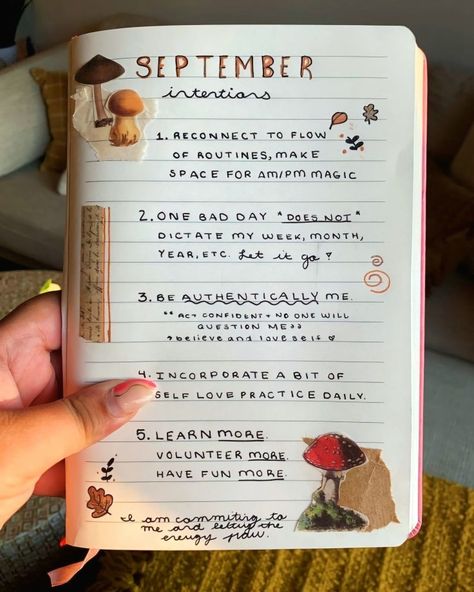 SEPTEMBER
intentions
1. RECONNECT TO FLOW
OF ROUTINES, MAKE
SPACE FOR AM/PM MAGIC
2. ONE BAD DAY "DOES NOT"
DICTATE MY WEEK, MONTH,
YEAR, ETC. Let it go!
3. BE AUTHENTICALLY ME.
"ACT CONFIDENT + NO ONE WILL
QUESTION ME"
believe and love self ♡
4. INCORPORATE A BIT OF
SELF LOVE PRACTICE DAILY.
5. LEARN MORE.
VOLUNTEER MORE.
HAVE FUN MORE.
I am commiting to
me and letting the
energy flow.